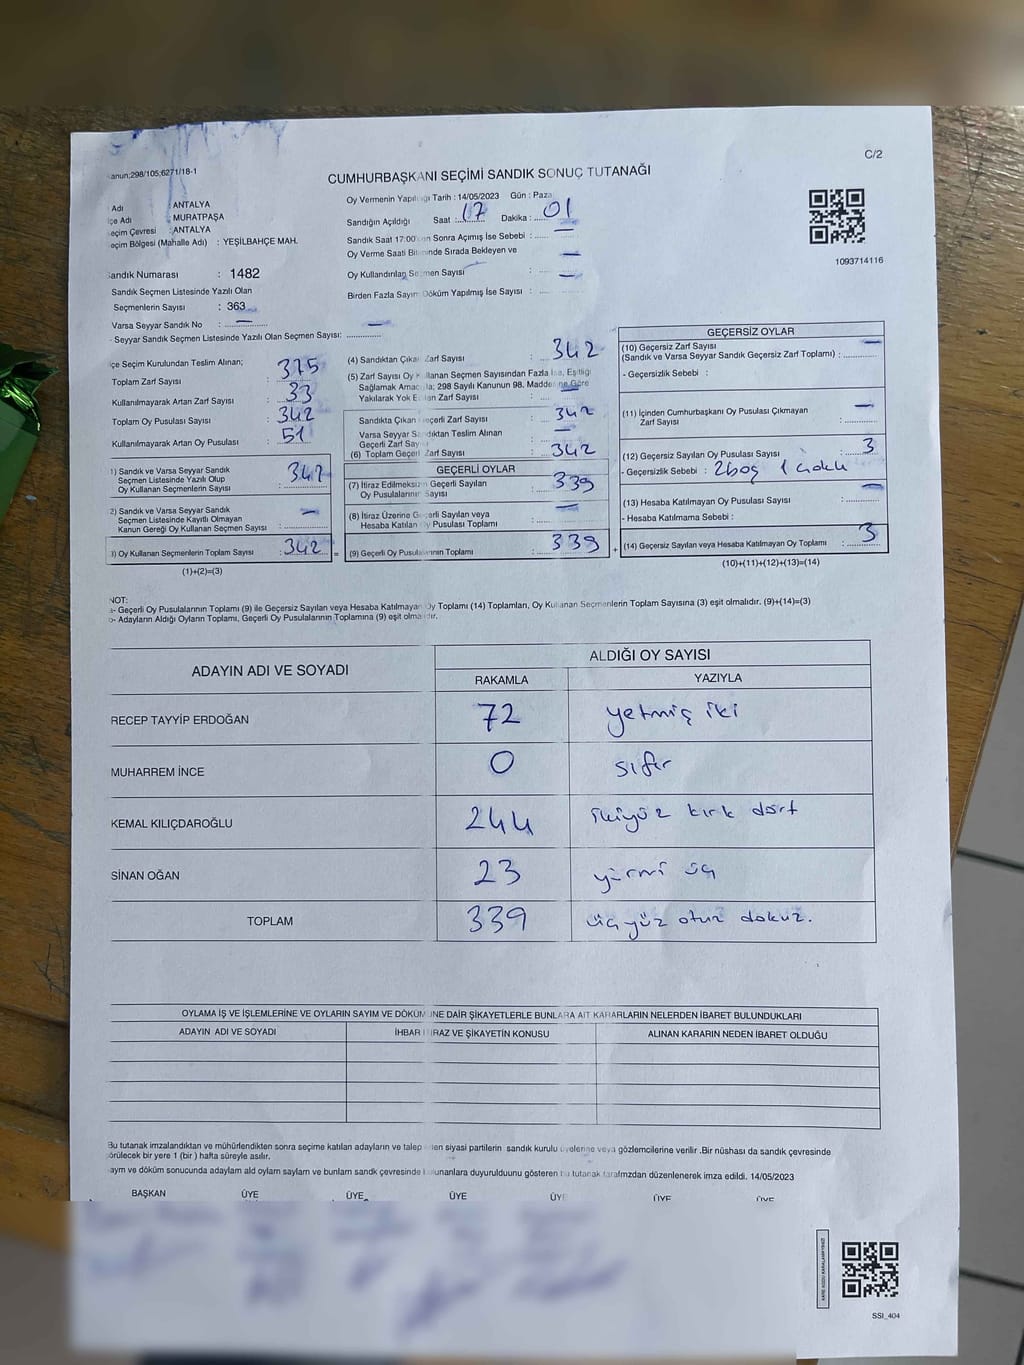 C/2
anun;298/105;6271/18-1
CUMHURBAŞKANI SEÇİMİ SANDIK SONUÇ TUTANAĞI
Adı : ANTALYA
çe Adı : MURATPAŞA
eçim Çevresi : ANTALYA
eçim Bölgesi (Mahalle Adı) : YEŞİLBAHÇE MAH.
Sandık Numarası : 1482
Sandık Seçmen Listesinde Yazılı Olan
Seçmenlerin Sayısı : 363
Varsa Seyyar Sandık No : —
- Seyyar Sandık Seçmen Listesinde Yazılı Olan Seçmen Sayısı: —
Oy Vermenin Yapıldığı Tarih : 14/05/2023 Gün : Paza
Sandığın Açıldığı Saat : 17 Dakika : 01
Sandık Saat 17:00'den Sonra Açımış İse Sebebi : —
Oy Verme Saati Bitiminde Sırada Bekleyen ve —
Oy Kullandırılan Seçmen Sayısı : —
Birden Fazla Sayım Döküm Yapılmış İse Sayısı :
1093714116
çe Seçim Kurulundan Teslim Alınan;
Toplam Zarf Sayısı : 375
Kullanılmayarak Artan Zarf Sayısı : 33
Toplam Oy Pusulası : 342
Kullanılmayarak Artan Oy Pusulası : 51
1) Sandık ve Varsa Seyyar Sandık
Seçmen Listesinde Yazılı Olup
Oy Kullanan Seçmenlerin Sayısı : 342
2) Sandık ve Varsa Seyyar Sandık
Seçmen Listesinde Kayıtlı Olmayan
Kanun Gereği Oy Kullanan Seçmen Sayısı : —
) Oy Kullanan Seçmenlerin Toplam Sayısı : 342 =
(1)+(2)=(3)
(4) Sandıktan Çıkan Zarf Sayısı : 342
(5) Zarf Sayısı Oy Kullanan Seçmen Sayısından Fazla İse, Eşitliği
Sağlamak Amacıyla; 298 Sayılı Kanunun 98. Maddesine Göre
Yakılarak Yok Edilen Zarf Sayısı : —
Sandıkta Çıkan Geçerli Zarf Sayısı : 342
Varsa Seyyar Sandıktan Teslim Alınan
Geçerli Zarf Sayısı : —
(6) Toplam Geçerli Zarf Sayısı : 342
GEÇERLİ OYLAR
(7) İtiraz Edilmeksizin Geçerli Sayılan
Oy Pusulalarının Sayısı : 339
(8) İtiraz Üzerine Geçerli Sayılan veya
Hesaba Katılan Oy Pusulası Toplamı : —
(9) Geçerli Oy Pusulalarının Toplamı : 339 +
GEÇERSİZ OYLAR
(10) Geçersiz Zarf Sayısı
(Sandık ve Varsa Seyyar Sandık Geçersiz Zarf Toplamı) : —
- Geçersizlik Sebebi :
(11) İçinden Cumhurbaşkanı Oy Pusulası Çıkmayan
Zarf Sayısı : —
(12) Geçersiz Sayılan Oy Pusulası Sayısı : 3
- Geçersizlik Sebebi : 2 boş 1 çoklu
(13) Hesaba Katılmayan Oy Pusulası Sayısı : —
- Hesaba Katılmama Sebebi :
(14) Geçersiz Sayılan veya Hesaba Katılmayan Oy Toplamı : 3
(10)+(11)+(12)+(13)=(14)
NOT:
a- Geçerli Oy Pusulalarının Toplamı (9) ile Geçersiz Sayılan veya Hesaba Katılmayan Oy Toplamı (14) Toplamları, Oy Kullanan Seçmenlerin Toplam Sayısına (3) eşit olmalıdır. (9)+(14)=(3)
b- Adayların Aldığı Oyların Toplamı, Geçerli Oy Pusulalarının Toplamına (9) eşit olmalıdır.
ADAYIN ADI VE SOYADI ALDIĞI OY SAYISI
RAKAMLA YAZIYLA
RECEP TAYYİP ERDOĞAN 72 yetmiş iki
MUHARREM İNCE 0 sıfır
KEMAL KILIÇDAROĞLU 244 ikiyüz kırk dört
SİNAN OĞAN 23 yirmi üç
TOPLAM 339 üç yüz otuz dokuz.
OYLAMA İŞ VE İŞLEMLERİNE VE OYLARIN SAYIM VE DÖKÜMÜNE DAİR ŞİKAYETLERLE BUNLARA AİT KARARLARIN NELERDEN İBARET BULUNDUKLARI
ADAYIN ADI VE SOYADI İHBAR İTİRAZ VE ŞİKAYETİN KONUSU ALINAN KARARIN NEDEN İBARET OLDUĞU
Bu tutanak imzalandıktan ve mühürlendikten sonra seçime katılan adayların ve talep eden siyasi partilerin sandık kurulu üyelerine veya gözlemcilerine verilir .Bir nüshası da sandık çevresinde
örülecek bir yere 1 (bir ) hafta süreyle asılır.
ayım ve döküm sonucunda adaylam ald oylarn saylarn ve bunlam sandk çevresinde bulunanlara duyurulduunu gösteren bu tutanak tarafmzdan düzenlenerek imza edildi. 14/05/2023
BAŞKAN ÜYE ÜYE ÜYE ÜYE ÜYE ÜYE
SSI_404